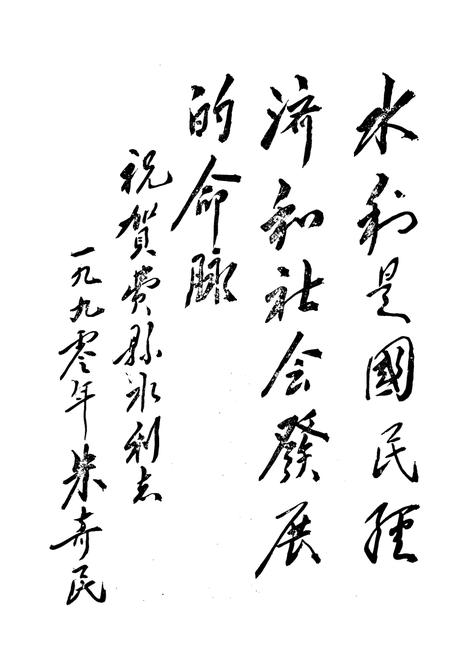 水利是國民經
濟和社会發展
的命脉
祝賀费县水利志
一九九零年朱奇民